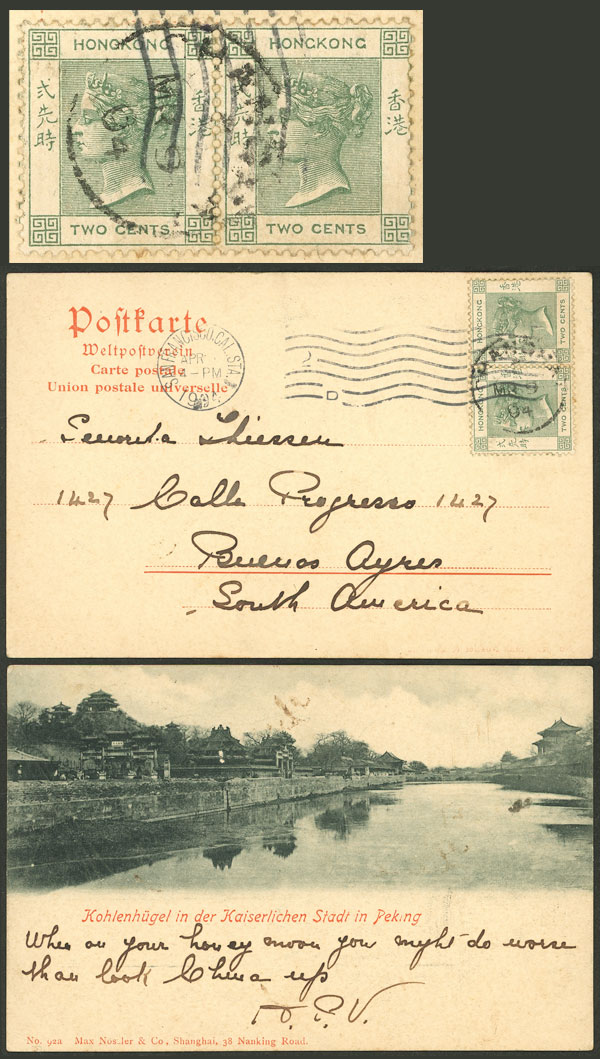 HONGKONG HONGKONG
弍先時 香港 弍先時 香港
MR 9
04
TWO CENTS TWO CENTS
Postkarte
Weltpostverein
Carte postale
Union postale universelle
SAN FRANCISCO, CAL. STA.
APR
4-PM
1904
2
D
香港
HONGKONG
TWO CENTS
HONGKONG
TWO CENTS
弍先時
MR 9
04
Senorita Thiessen
1427 Calle Progresso 1427
Buenos Ayres
South America
Kohlenhügel in der Kaiserlichen Stadt in Peking
When on your honey moon you might do worse
than look China up
No. 92a Max Nössler & Co, Shanghai, 38 Nanking Road.